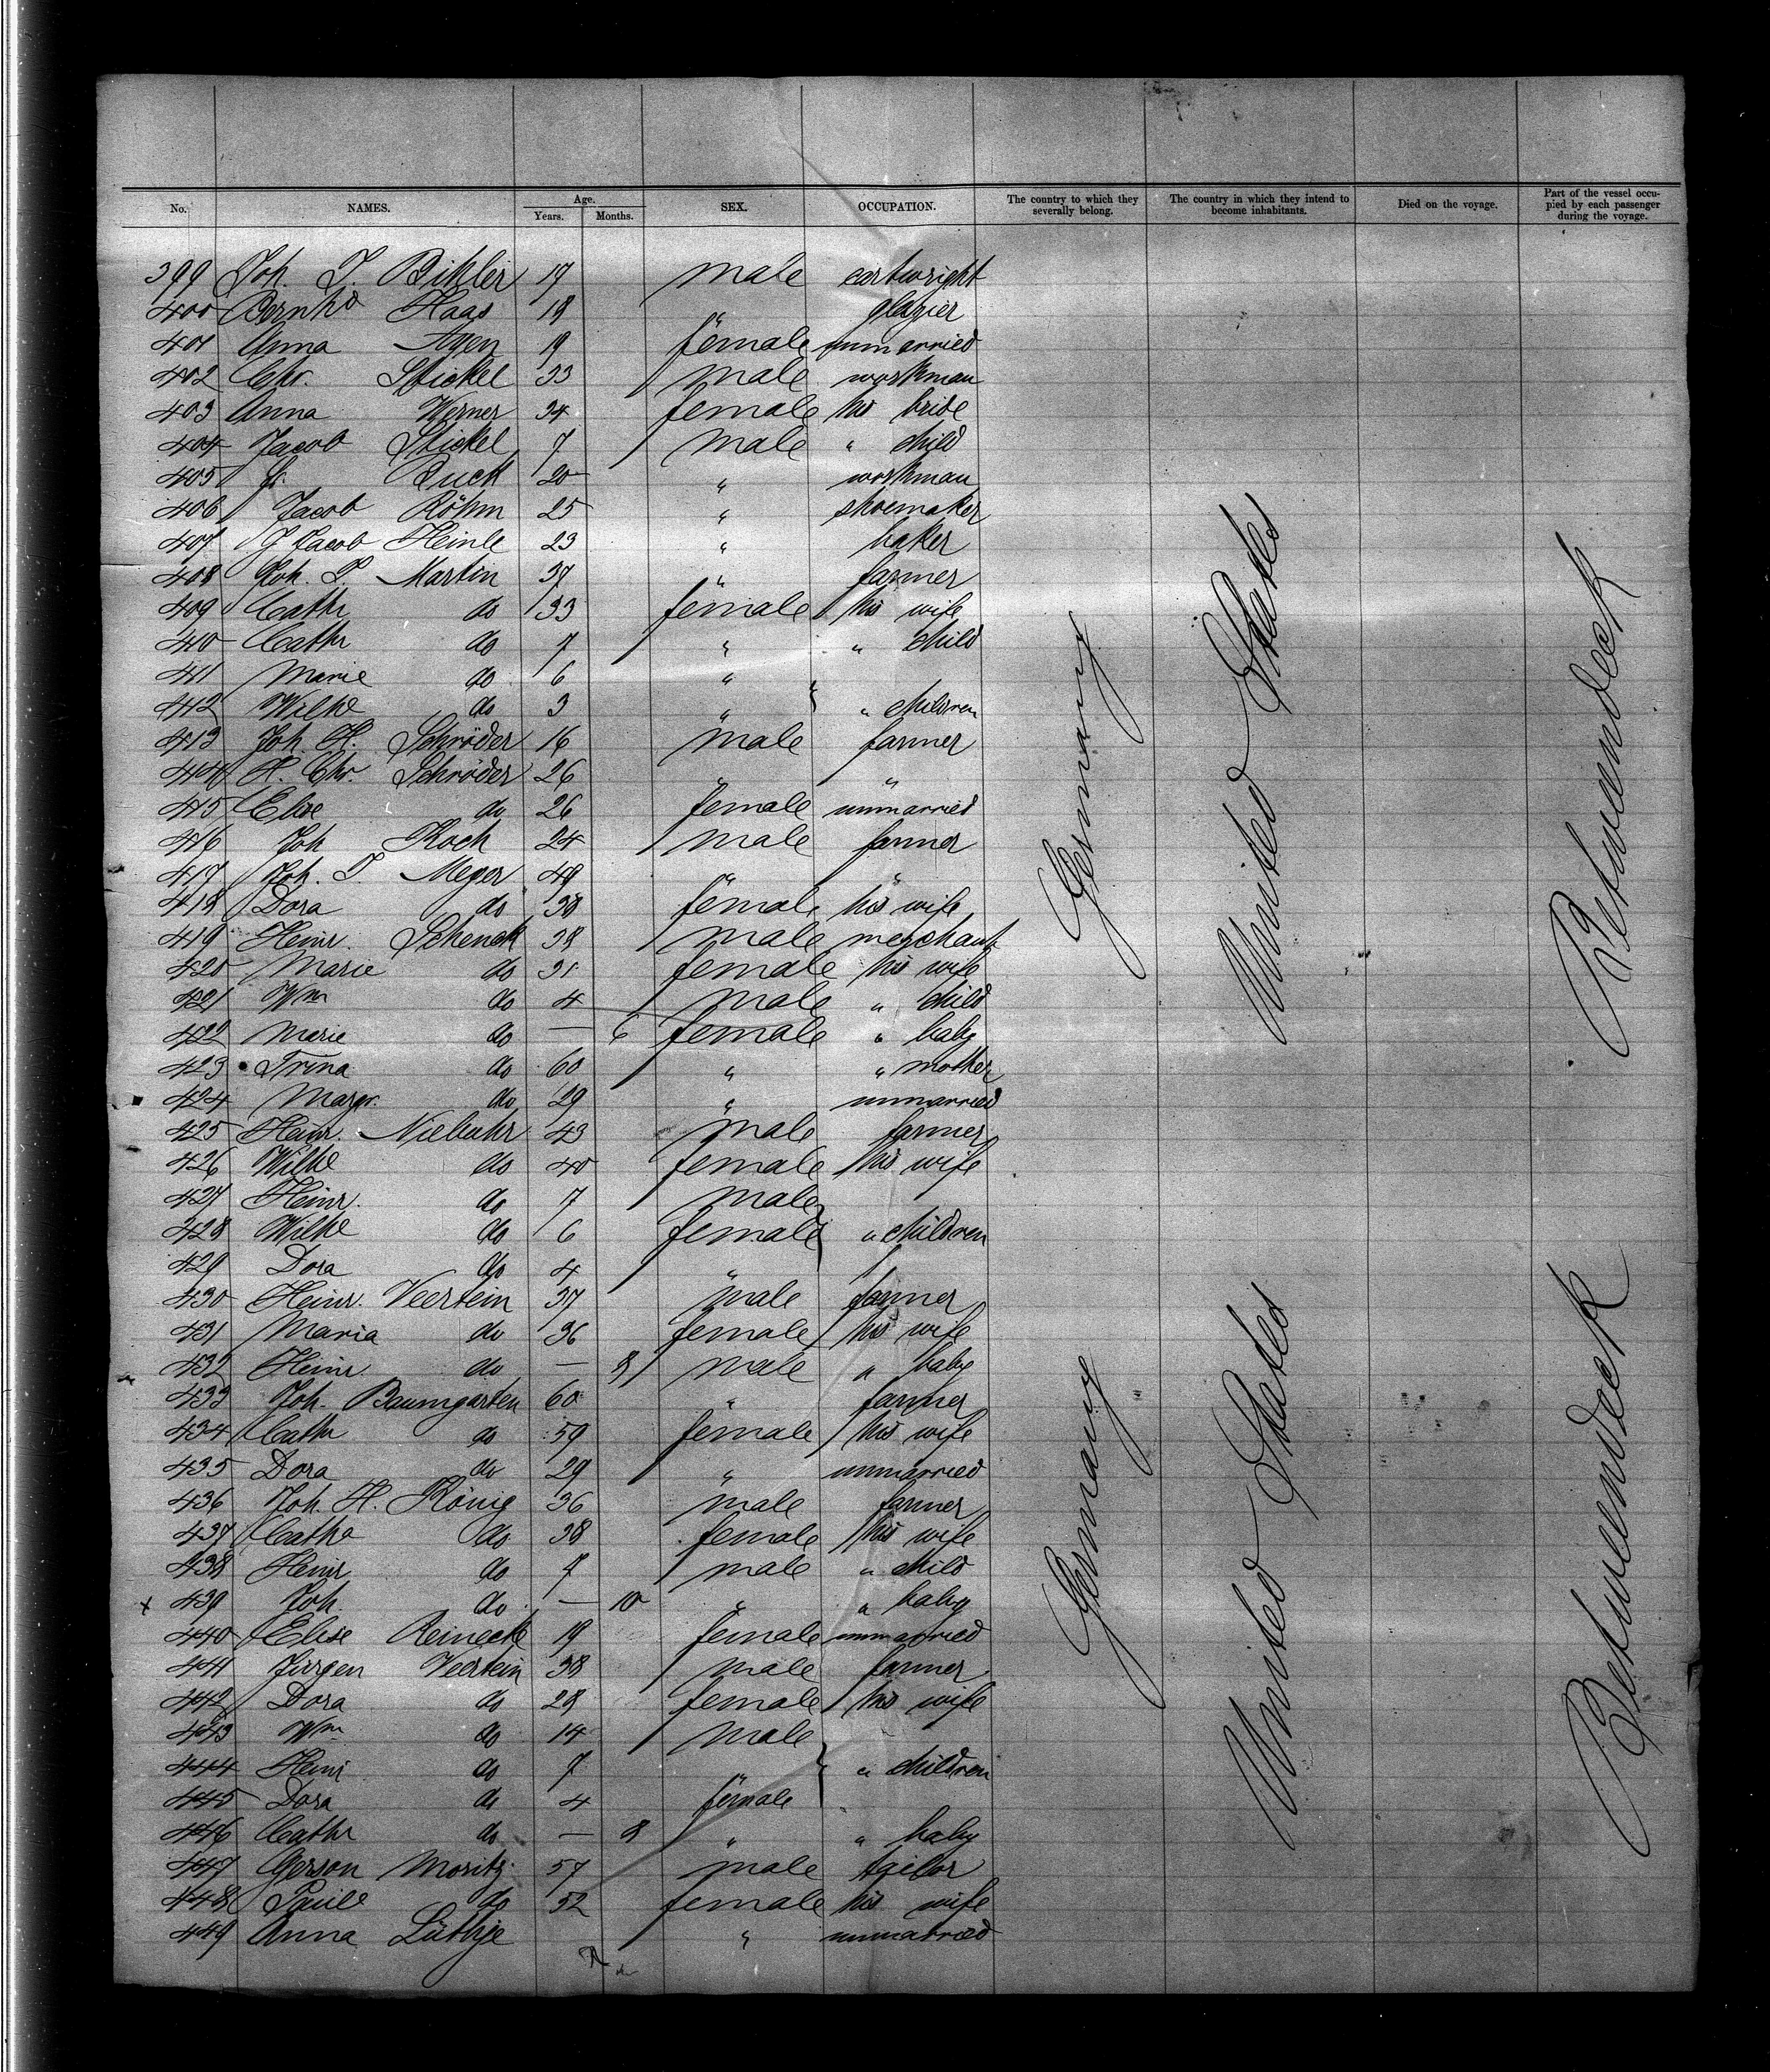 No. NAMES. Age. Years. Months. SEX. OCCUPATION. The country to which they severally belong. The country in which they intend to become inhabitants. Died on the voyage. Part of the vessel occupied by each passenger during the voyage.
399 Joh. J. Bihler 19 male cartwright
400 Bernhd Haas 18 " glazier
401 Anna 19 female unmarried
402 Chr. Stickel 33 male workman
403 Anna Werner 34 female his bride
404 Jacob Stickel 7 male " child
405 Fr. Buck 20 " workman
406 Jacob Röhm 25 " shoemaker
407 J Jacob Heinle 23 " baker
408 Joh. P. Martin 37 " farmer
409 Cathr do 33 female his wife
410 Cathr do 7 " " child
411 Marie do 6 "
412 Wilhe do 3 " " children
413 Joh. H. Schröder 16 male farmer
414 H. Chr. Schröder 26 " "
415 Elise do 26 female unmarried
416 Joh Koch 24 male farmer
417 Joh. P. Meyer 49 " "
418 Dora do 38 female his wife
419 Heinr. Schenck 38 male merchant
420 Marie do 31 female his wife
421 Wm do 4 male " child
422 Marie do — 6 female " baby
423 Trina do 60 " " mother
424 Margr. do 29 " unmarried
425 Heinr. Niebuhr 43 male farmer
426 Wilhe do 40 female his wife
427 Heinr. do 7 male
428 Wilhe do 6 female " children
429 Dora do 4 "
430 Heinr. Veertein 37 male farmer
431 Maria do 36 female his wife
432 Heinr. do — 8 male " baby
433 Joh. Baumgarten 60 " farmer
434 Cathr do 59 female his wife
435 Dora do 29 " unmarried
436 Joh. H. König 36 male farmer
437 Cathe do 38 female his wife
438 Heinr do 7 male " child
x 439 Joh. do — 10 " " baby
440 Elise Reinecke 19 female unmarried
441 Jürgen Veertein 38 male farmer
442 Dora do 28 female his wife
443 Wm do 14 male
444 Heinr do 7 " children
445 Dora do 4 female
446 Cathr do — 8 " " baby
447 Gerson Moritz 57 male tailor
448 do 52 female his wife
449 Anna Lüthje " unmarried
Germany
United States
Betweendeck
Germany
United States
Betweendeck